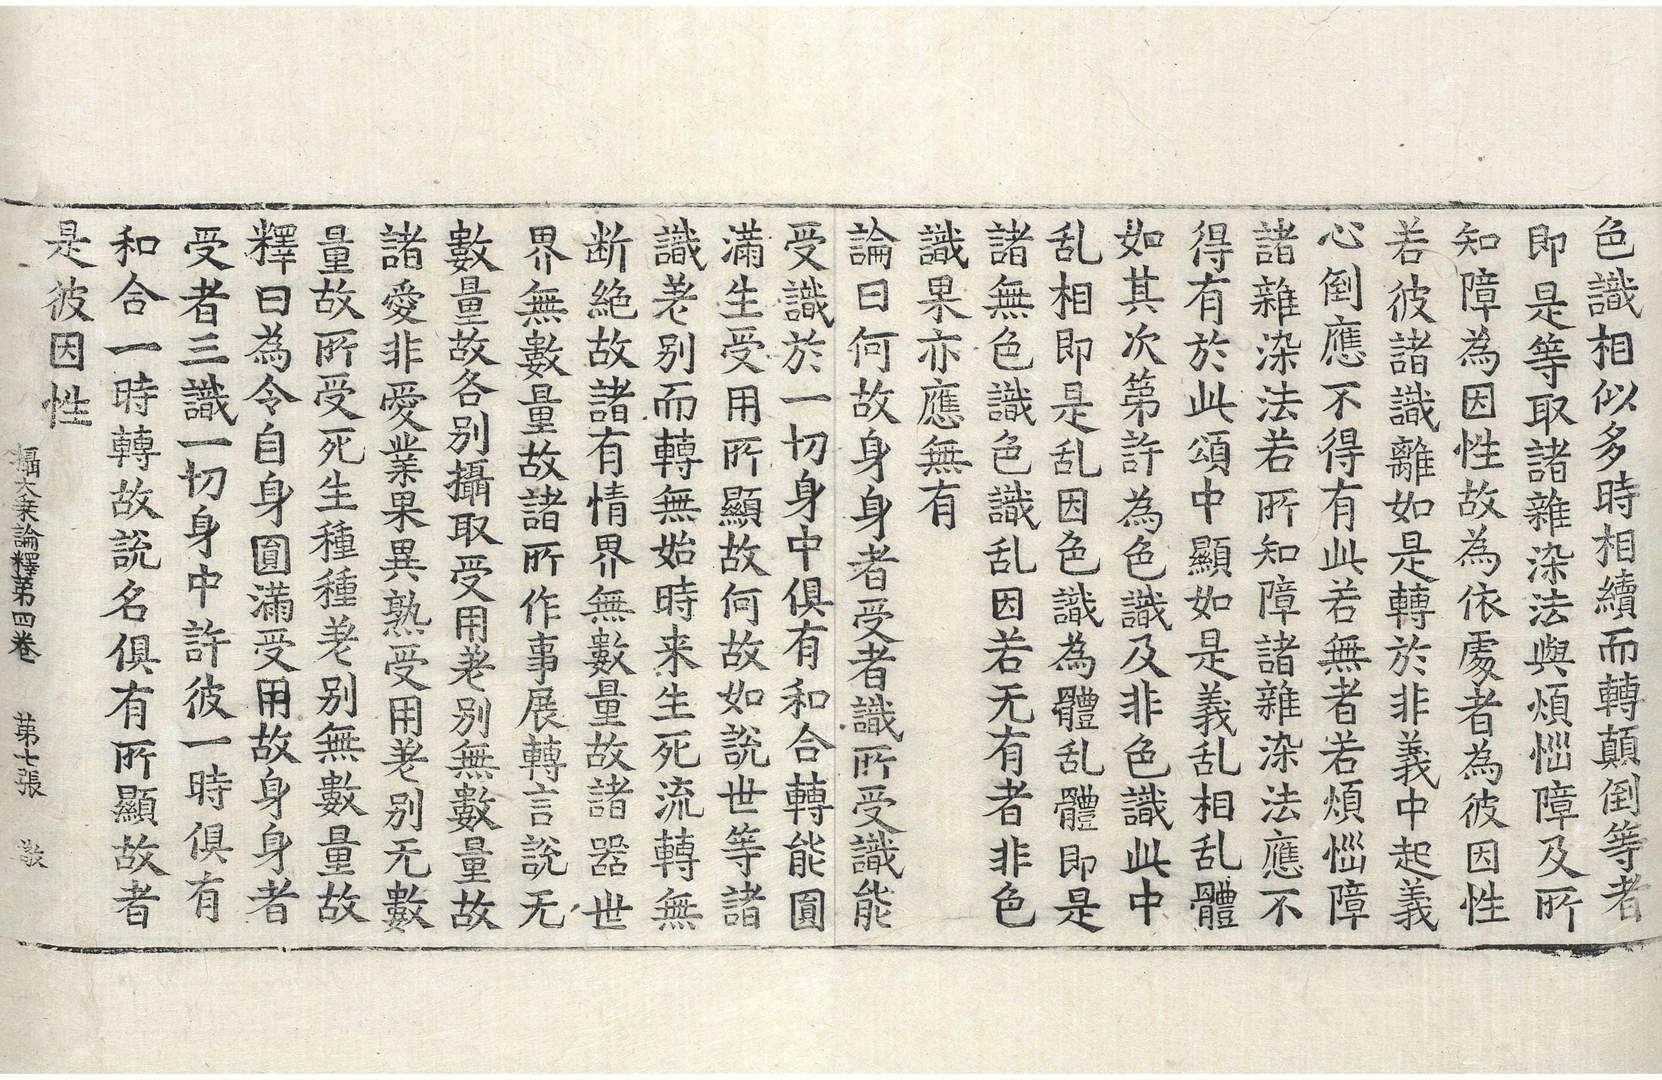 色識相似多時相續而轉顛倒等者
即是等取諸雜染法與煩惱障及所
知障為因性故為依處者為彼因性
若彼諸識離如是轉於非義中起義
心倒應不得有此若無者若煩惱障
諸雜染法若所知障諸雜染法應不
得有於此頌中顯如是義乱相乱體
如其次第許為色識及非色識此中
乱相即是乱因色識為體乱體即是
諸無色識色識乱因若无有者非色
識果亦應無有
論曰何故身身者受者識所受識能
受識於一切身中俱有和合轉能圓
滿生受用所顯故何故如說世等諸
識差别而轉無始時来生死流轉無
断絶故諸有情界無數量故諸器世
界無數量故諸所作事展轉言說无
數量故各别攝取受用差别無數量故
諸愛非愛業果異熟受用差别无數
量故所受死生種種差别無數量故
釋曰為令自身圓滿受用故身身者
受者三識一切身中許彼一時俱有
和合一時轉故說名俱有所顯故者
是彼因性
攝大乗論釋第四卷 第七張